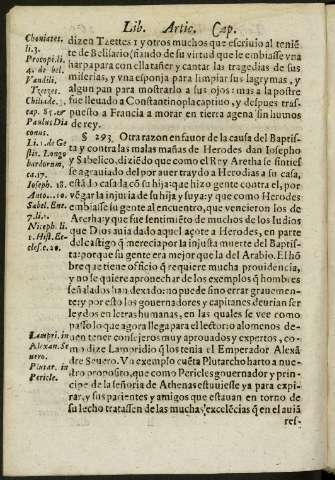 Lib. Artic. Cap.
Choniates.
li.3.
Procopi.li.
4. de bel.
Vandili.
Tzetzes.
Chiliade.3.
cap. 85.
Paulus Dia
conus.
Li.1.de Ge
stis Longo
bardorum,
ca.17.
Ioseph. 18.
Anto...10.
Sabel. Ene.
7.li.2.
Niceph.li.
1.Hist.Ec-
cles.c.20.
Lampri.in
Alexan.Se
uero.
Plutar. in
Pericle.
dizen Tzettes: y otros muchos que escriuio al teniē
te de Belisario (siando de su virtud que le embiasse vna
harpa para con ella tañer y cantar las tragedias de sus
miserias, y vna esponja para limpiar sus lagrymas, y
algun pan para mostrarlo a sus ojos: mas a la postre
fue lleuado a Constantinopla captiuo, y despues tras-
puesto a Francia a morar en tierra agena sin humos
de rey.
§ 293 Otra razon en fauor de la causa del Baptis-
ta y contra las malas mañas de Herodes dan Iosepho
y Sabelico, diziēdo que como el Rey Aretha se sintiesse
agrauiado del por auer traydo a Herodias a su casa,
estādo casada cō su hija: que hizo gente contra el, por
vēgar la injuria de su hija y suya: y que como Herodes
embiasse su gente al encuentro, que vencieron los de
Aretha: y que fue sentimiēto de muchos de los Iudios
que Dios auia dado aquel açote a Herodes, en parte
del castigo q̄ merecia por la injusta muerte del Baptis-
ta: porque su gente era mejor que la del Arabio. El hō
bre que tiene officio q̄ requiere mucha prouidencia,
y no se quiere aprouechar de los exemplos q̄ hombres
señalados han dexado: no puede sino errar grauemen-
te: y por esto los gouernadores y capitanes deurian ser
leydos en letras humanas, en las quales se vee como
passo lo que agora llega para el lector: o alomenos de-
uen tener consejeros muy aprouados y expertos, co-
mo dize Lampridio q̄ los tenia el Emperador Alexā
dre Seuero. Vn exemplo cuēta Plutarcho harto a nue-
stro proposito, que como Pericles gouernador y prin-
cipe de la señoria de Athenas estuuiesse ya para expi-
rar, y sus parientes y amigos que estauan en torno de
su lecho tratassen de las muchas excelēcias q̄ en el auiā
res-